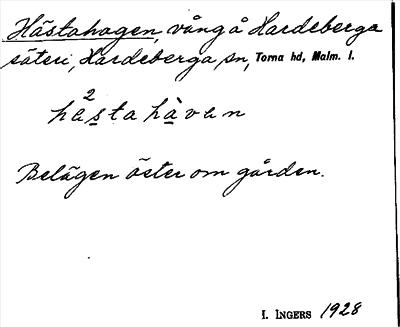 Hästahagen, vång å Hardeberga
säteri, Hardeberga sn, Torna hd, Malm. l.
hä²sta hàvan
Belägen öster om gården.
I. INGERS 1928